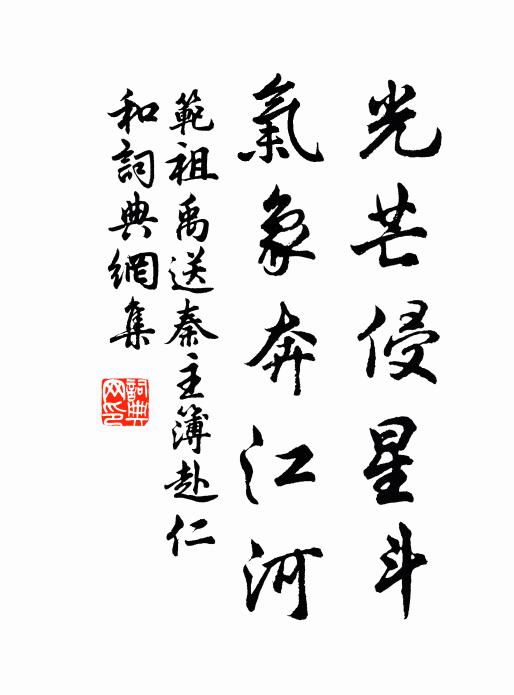 光芒侵星斗
氣象奔江河
範祖禹送秦主簿赴仁
和詞典網集
詞典網印